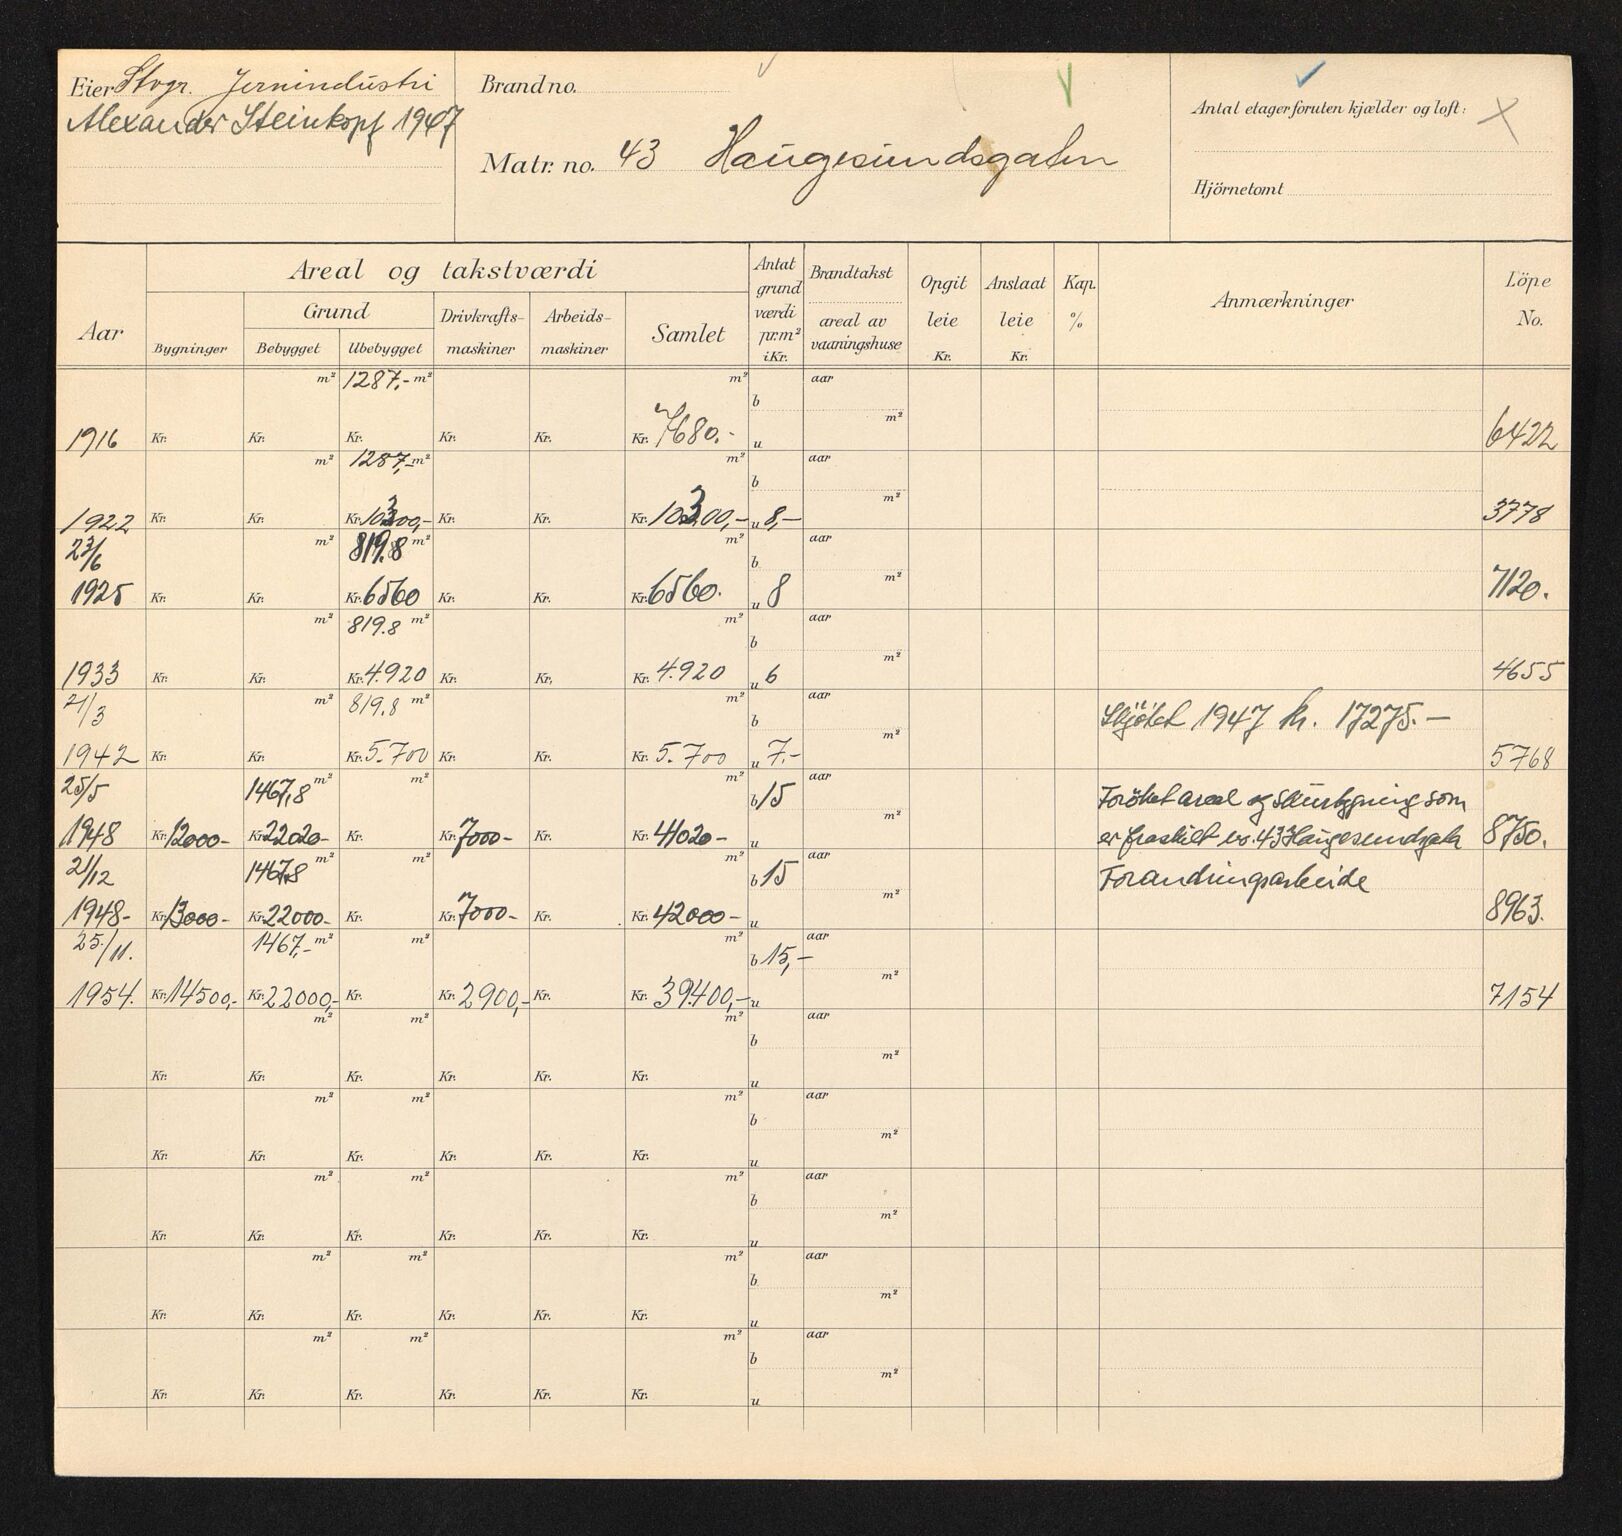 Eier Stvgr. Jernindustri
Alexander Steinkopf 1947
Brand no.
Matr. no. 43 Haugesundsgaten
Antal etager foruten kjælder og loft:
Hjörnetomt
Aar
Areal og takstværdi
Grund
Bygninger Bebygget Ubebygget
Drivkrafts-maskiner
Arbeids-maskiner
Samlet
Antat grund værdi pr. m² i Kr.
Brandtakst
areal av vaaningshuse
Opgit leie Kr.
Anslaat leie Kr.
Kap. %
Anmærkninger
Löpe No.
m² 1287,- m² m² aar
b
m²
1916 Kr. Kr. Kr. Kr. Kr. Kr. 7680.- u 6422
m² 1287,- m² m² aar
b
m²
1922 Kr. Kr. Kr. 10300,- Kr. Kr. Kr. 10300,- u 8,- 3778
23/6 m² 819.8 m² m² aar
b
m²
1925 Kr. Kr. Kr. 6560 Kr. Kr. Kr. 6560. u 8 7120.
m² 819.8 m² m² aar
b
m²
1933 Kr. Kr. Kr. 4.920 Kr. Kr. Kr. 4.920 u 6 4655
21/3 m² 819.8 m² m² aar
b Skjötet 1947 kr. 17275.-
m²
1942 Kr. Kr. Kr. 5.700 Kr. Kr. Kr. 5.700 u 7.- 5768
25/5 1467,8 m² m² m² aar
b 15 Foröket areal og som
m²
1948 Kr. 12000- Kr. 22020- Kr. Kr. 7000- Kr. Kr. 41020- u er fraskilt 43 Haugesundgata 8750.
21/12 1467.8 m² m² m² aar
b 15 Forandringsarbeide
m²
1948- Kr. 13000- Kr. 22000- Kr. Kr. 7000- Kr. Kr. 42000- u 8963.
25./11. 1467,- m² m² m² aar
b 15,-
m²
1954. Kr. 14500,- Kr. 22000,- Kr. Kr. 2900,- Kr. Kr. 39.400,- u 7154
m² m² m² aar
b
m²
Kr. Kr. Kr. Kr. Kr. Kr. u
m² m² m² aar
b
m²
Kr. Kr. Kr. Kr. Kr. Kr. u
m² m² m² aar
b
m²
Kr. Kr. Kr. Kr. Kr. Kr. u
m² m² m² aar
b
m²
Kr. Kr. Kr. Kr. Kr. Kr. u
m² m² m² aar
b
m²
Kr. Kr. Kr. Kr. Kr. Kr. u